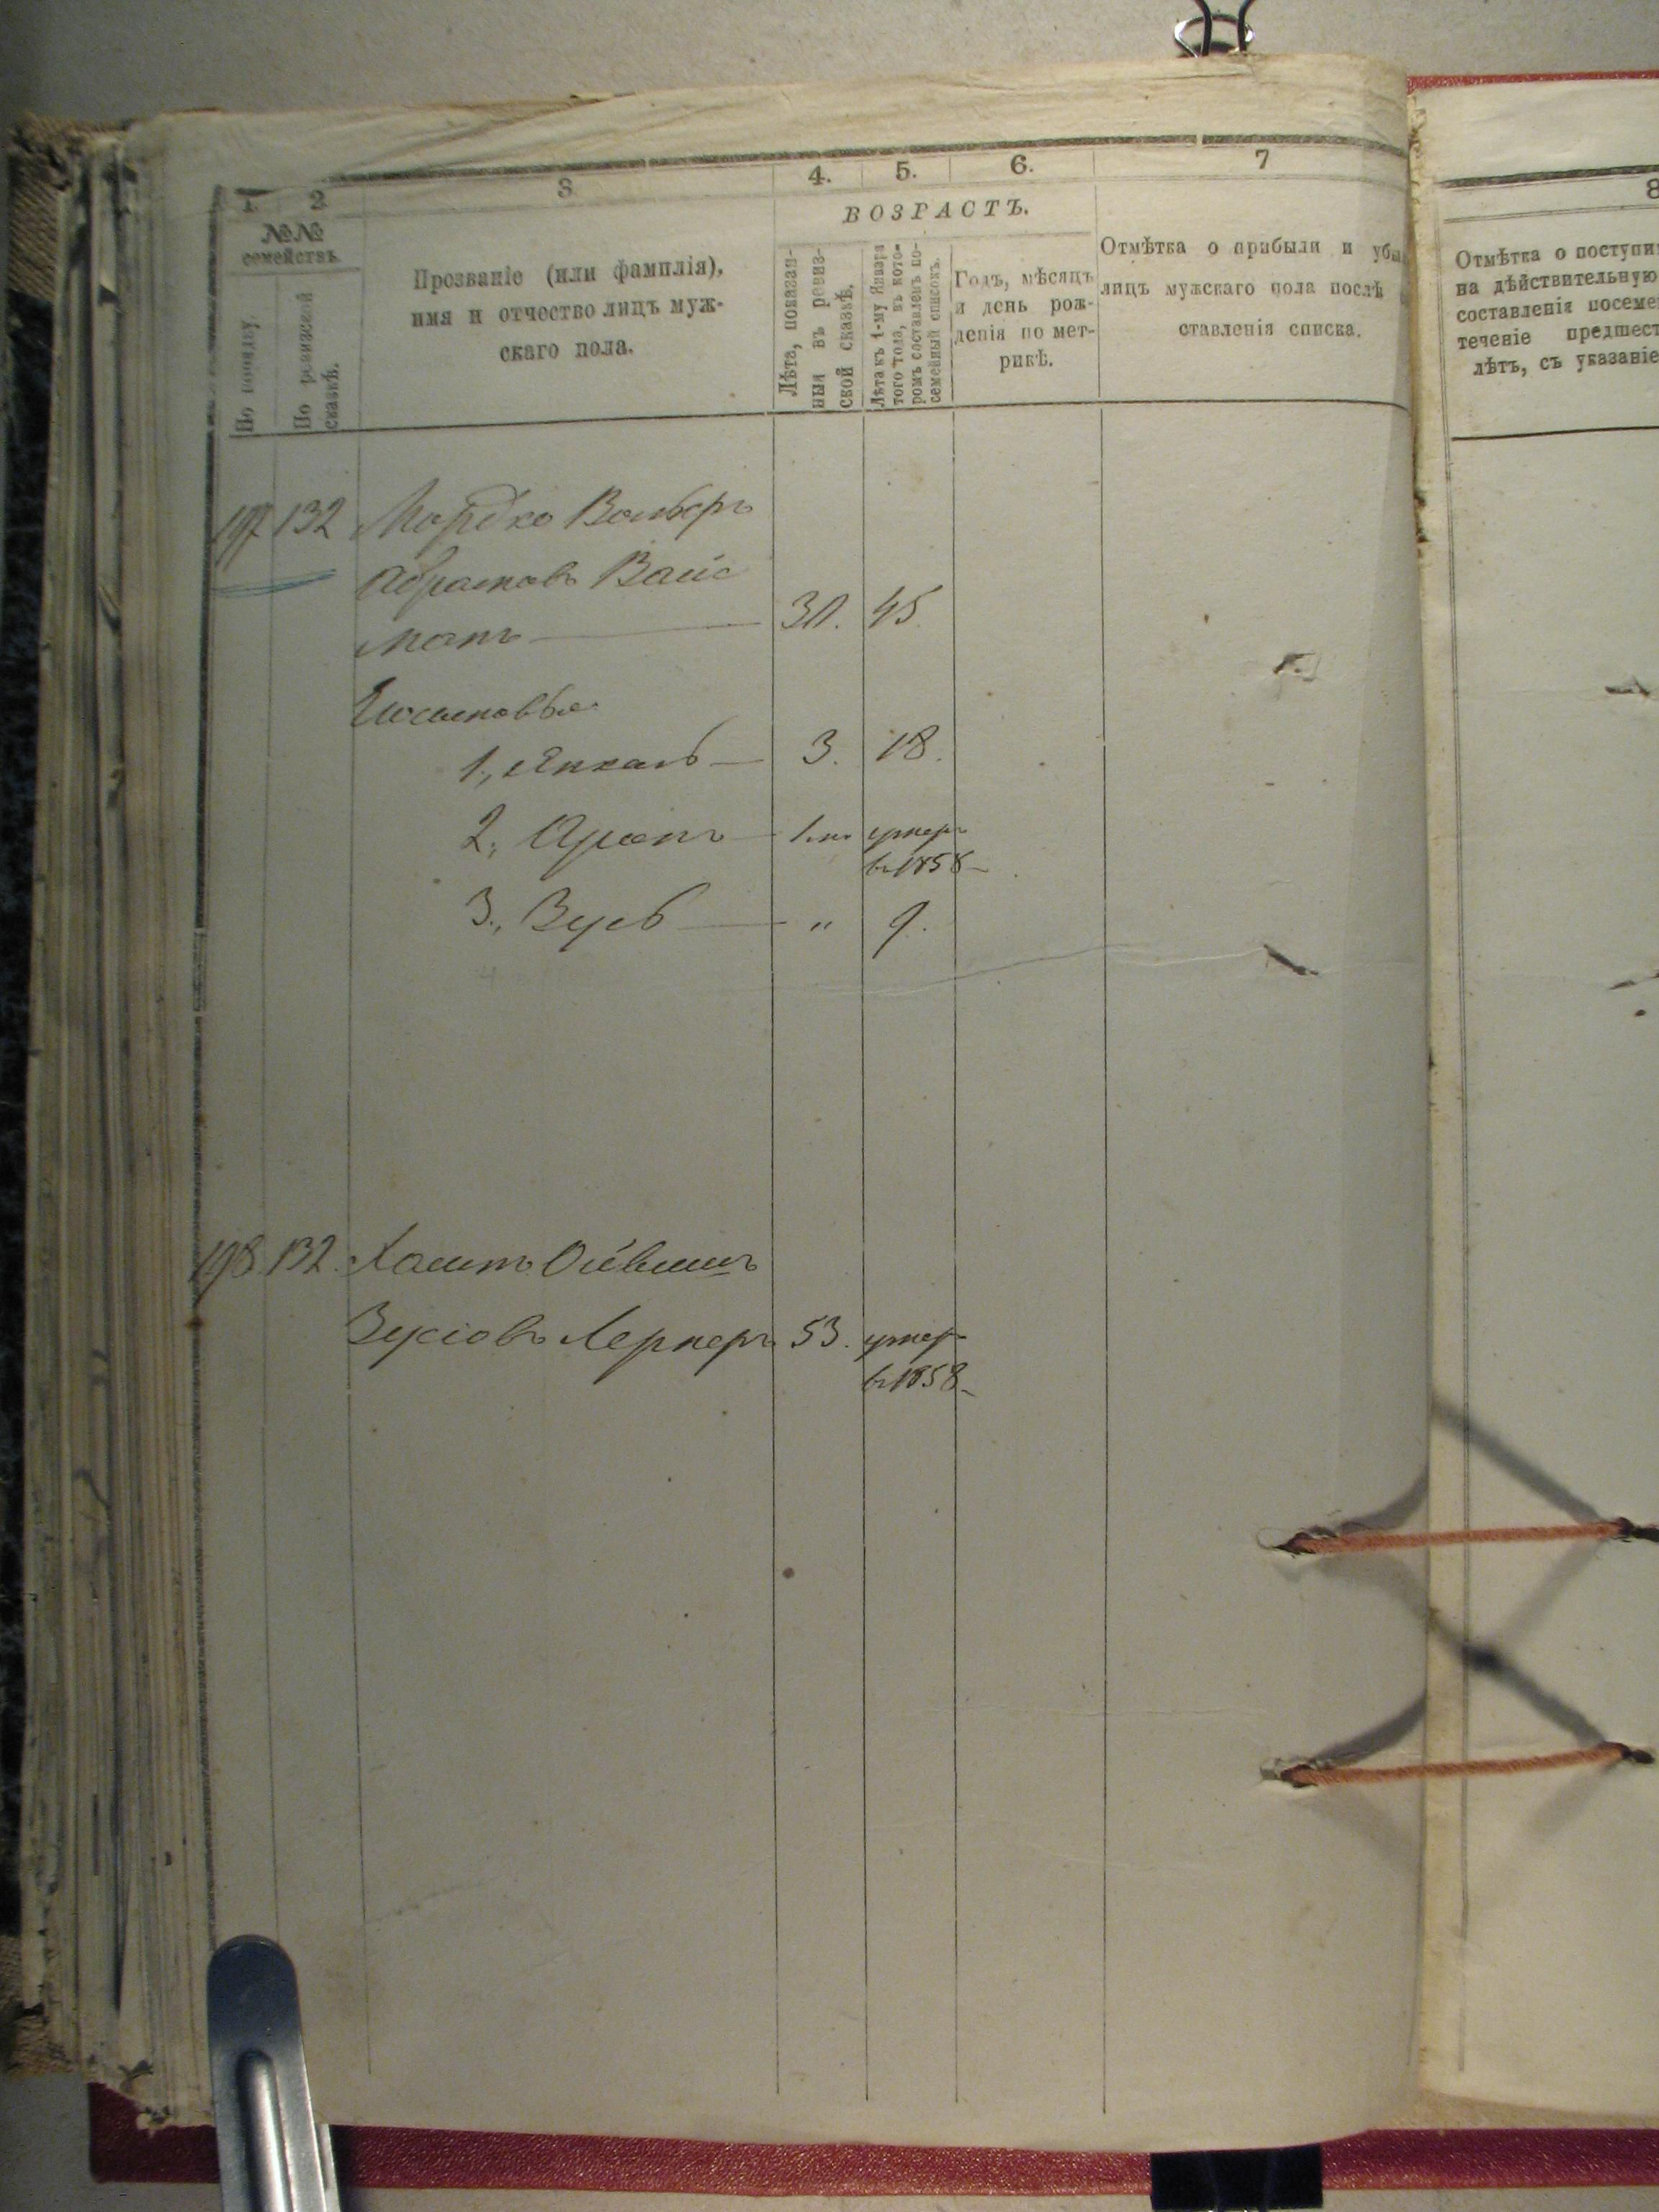 1 2 3 4. 5. 6. 7
№№ семействъ.
По порядку.
По ревизской сказкѣ.
Прозваніе (или фамилія),
имя и отчество лицъ муж-
скаго пола.
ВОЗРАСТЪ.
Лѣта, показан-
ныя въ ревиз-
ской сказкѣ.
Лѣта къ 1-му Января
того года, въ кото-
ромъ составленъ по-
семейный списокъ.
Годъ, мѣсяцъ
и день рож-
денія по мет-
рикѣ.
Отмѣтка о прибыли и убы
лицъ мужскаго пола послѣ
ставленія списка.
197 132 Мордко Вольфъ
Абрамовъ Вайс
манъ 30. 45.
1., Янкель 3. 18.
2., Аронъ 1 м. умеръ
въ 1858
3., Зусь " 9.
198. 132. Хаимъ Ойвшиъ
Зусіовъ Лернеръ 53. умеръ
въ 1858
8
Отмѣтка о поступи
на дѣйствительную
составленія посеме
теченіе предшест
лѣтъ, съ указаніе